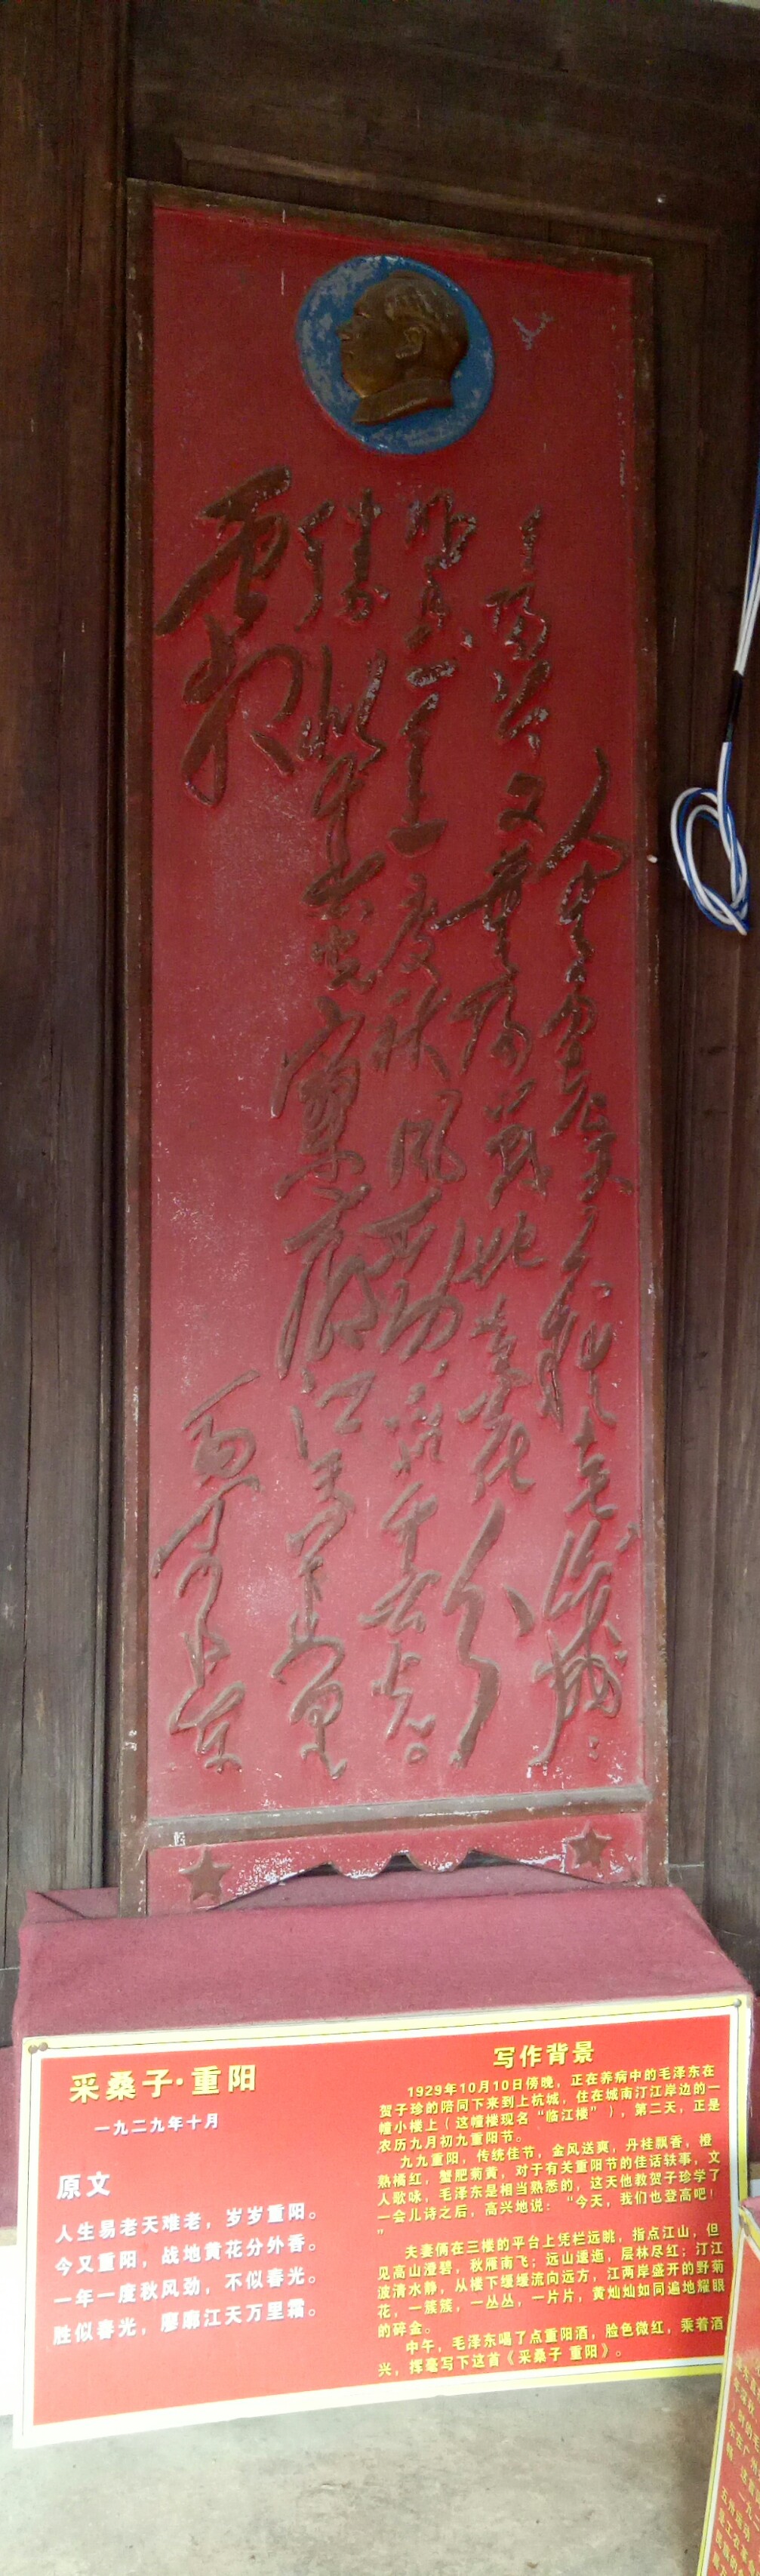 人生易老天難老歲歲
重陽今又重陽戰地黃花分
外香一年一度秋風勁不似春光
勝似春光寥廓江天萬里
霜
采桑子·重阳
一九二九年十月
原文
人生易老天难老，岁岁重阳。
今又重阳，战地黄花分外香。
一年一度秋风劲，不似春光。
胜似春光，廖廓江天万里霜。
写作背景
1929年10月10日傍晚，正在养病中的毛泽东在
贺子珍的陪同下来到上杭城，住在城南汀江岸边的一
幢小楼上（这幢楼现名“临江楼”），第二天，正是
农历九月初九重阳节。
九九重阳，传统佳节，金风送爽，丹桂飘香，橙
熟橘红，蟹肥菊黄，对于有关重阳节的佳话轶事，文
人歌咏，毛泽东是相当熟悉的，这天他教贺子珍学了
一会儿诗之后，高兴地说：“今天，我们也登高吧！
”
夫妻俩在三楼的平台上凭栏远眺，指点江山，但
见高山澄碧，秋雁南飞；远山逶迤，层林尽红；汀江
波清水静，从楼下缓缓流向远方，江两岸盛开的野菊
花，一簇簇，一丛丛，一片片，黄灿灿如同遍地耀眼
的碎金。
中午，毛泽东喝了点重阳酒，脸色微红，乘着酒
兴，挥毫写下这首《采桑子 重阳》。